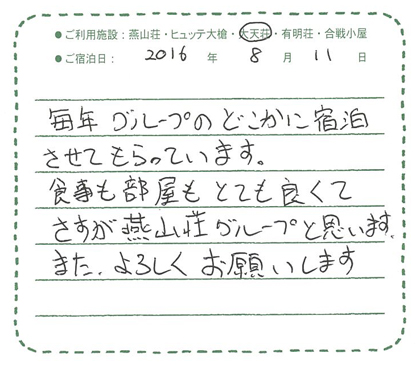 ●ご利用施設：燕山荘・ヒュッテ大槍・大天荘・有明荘・合戦小屋
●ご宿泊日： 2016 年 8 月 11 日
毎年 グループの どこかに 宿泊
させて もらっています。
食事も 部屋も とても 良くて
さすが 燕山荘 グループと 思います。
また、よろしく お願いします